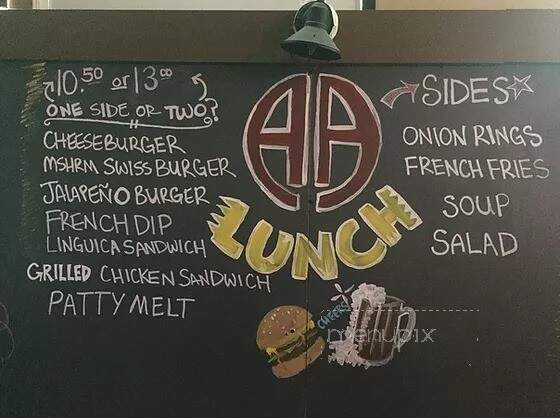 10.50 or 13.00
ONE SIDE OR TWO?
CHEESEBURGER
MSHRM SWISS BURGER
JALAPEÑO BURGER
FRENCH DIP
LINGUICA SANDWICH
GRILLED CHICKEN SANDWICH
PATTY MELT
AA
LUNCH
SIDES
ONION RINGS
FRENCH FRIES
SOUP
SALAD
CHEERS
menupix